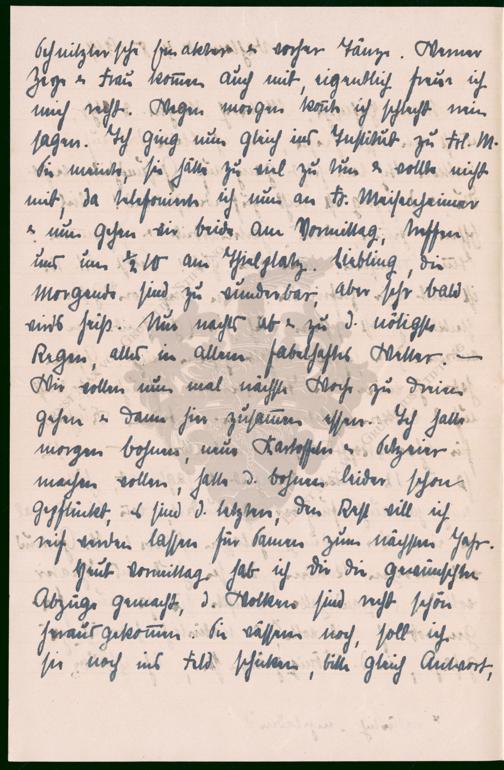 Schnitzlersche Einakter u vorher Tänze. Werner
Zege u Frau kommen auch mit, eigentlich freue ich
mich recht. Wegen morgen konnte ich schlecht nein
sagen. Ich ging nun gleich ins Institut zu Frl. M.
Sie meinte, sie hätte zu viel zu tun u wollte nicht
mit, da telefonierte ich nun an Fr. Meisenheimer
u nun gehen wir beide am Vormittag, treffen
uns um ½ 10 am Thielplatz. Liebling, die
Morgende sind zu wunderbar, aber sehr bald
wirds heiß. Nur nachts ab u zu d. nötigste
Regen, alles in allem fabelhaftes Wetter. —
Wir wollen nun mal nächste Woche zu dreien
gehen u dann hier zusammen essen. Ich hatte
morgen bohnen, neue Kartoffeln u Setzeier
machen wollen, hatte d. bohnen leider schon
gepflückt, es sind d. letzten, den Rest will ich
reif werden lassen für Samen zum nächsten Jahr.
Heut vormittag hab ich dir die gewünschten
Abzüge gemacht, d. Wolken sind recht schön
herausgekommen. Sie wässern noch, soll ich
sie noch ins Feld schicken, bitte gleich Antwort,